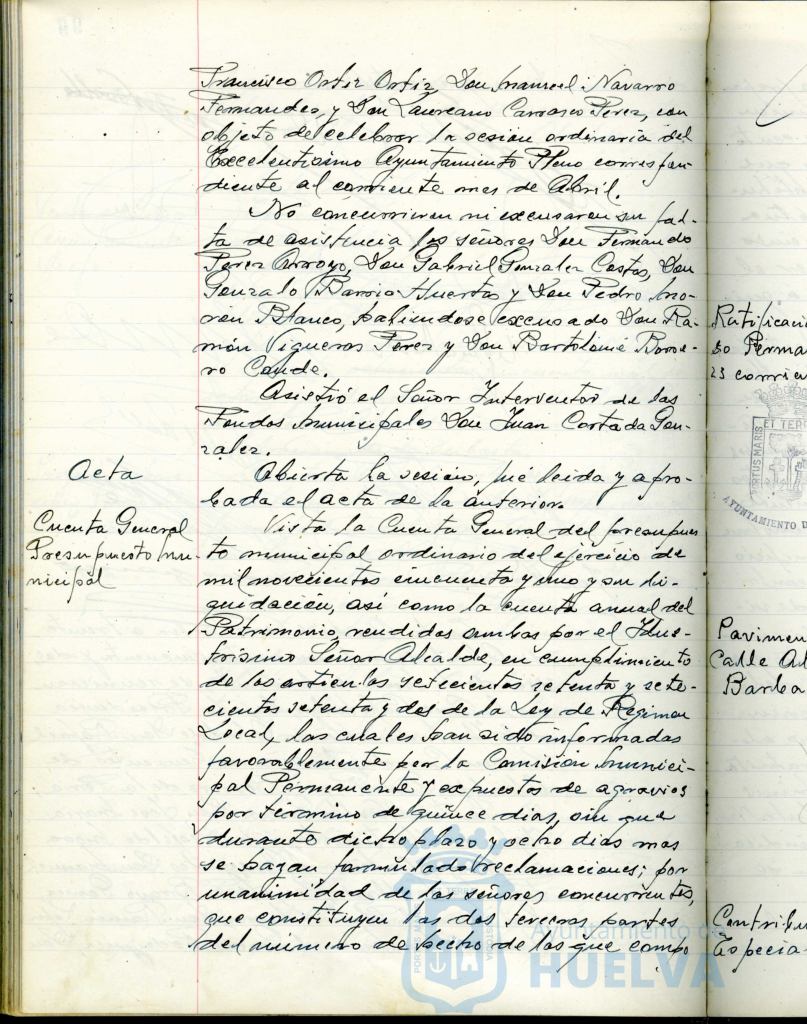 Francisco Ortiz Ortiz, Don Manuel Navarro
Fernandez, y Don Laureano Carrasco Perez, con
objeto de celebrar la sesión ordinaria del
Excelentisimo Ayuntamiento Pleno correspon-
diente al corriente mes de Abril.
No concurrieron ni excusaron su fal-
ta de asistencia los señores Don Fernando
Perez Arroyo, Don Gabriel Gonzalez Costas, Don
Gonzalo Barrio Huertas y Don Pedro Mo-
ron Blanco, habiendose excusado Don Ra-
món Vigueras Perez y Don Bartolomé Borre-
ro Conde.
Asistió el Señor Interventor de los
Fondos Municipales Don Juan Cortada Gon-
zalez.
Acta
Abierta la sesión, fué leida y apro-
bada el acta de la anterior.
Cuenta General
Presupuesto Mu-
nicipal
Vista la Cuenta General del presupues
to municipal ordinario del ejercicio de
mil novecientos cincuenta y uno y su li-
quidación, así como la cuenta anual del
Patrimonio, rendidas ambas por el Ilus-
trisimo Señor Alcalde, en cumplimiento
de los articulos setecientos setenta y sete-
cientos setenta y dos de la Ley de Regimen
Local, las cuales han sido informadas
favorablemente por la Comisión Munici-
pal Permanente y expuestos de agravios
por término de quince dias, sin que
durante dicho plazo y ocho dias mas
se hayan formulado reclamaciones; por
unanimidad de los señores concurrentes,
que constituyen las dos terceras partes
del número de hecho de los que compo
Ratificaci
do Perma
23 corrie
AYUNTAMIENTO D
Pavimen
Calle Al
Barba
Contribu
Especia
Ayuntamiento de
HUELVA